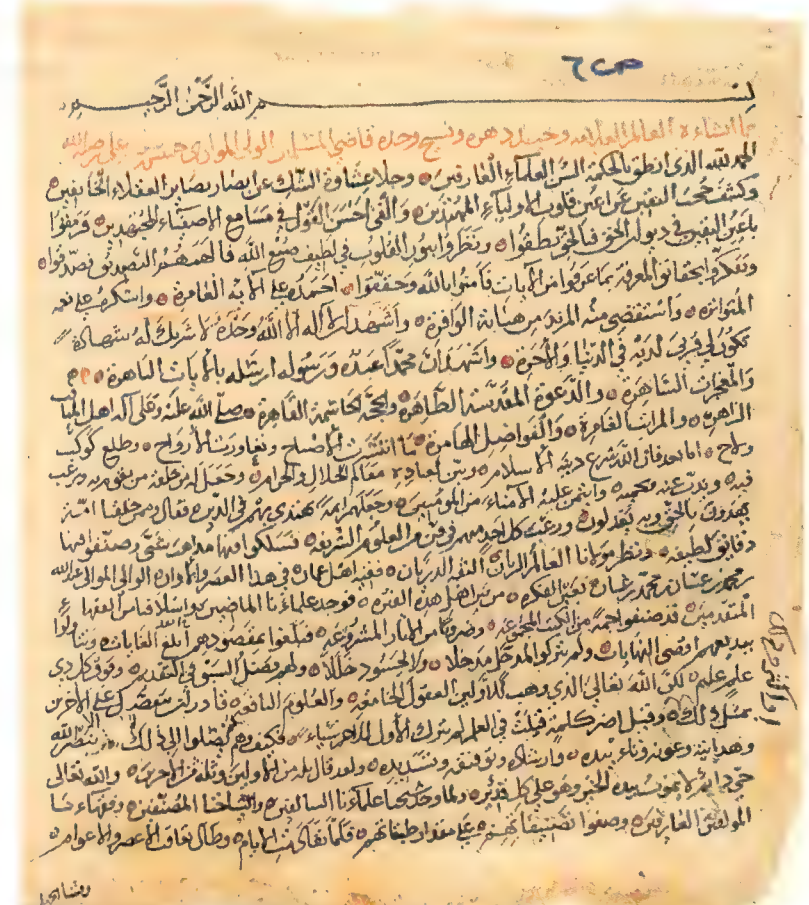 بسم الله الرحمن الرحيم
ما انشاءه العالم العلامه وحيد دهره ونسيج وحده قاضي المسلمين الوالي الموالي
الحمد لله الذي انطق بالحكمة السن العلماء العارفين وجلا عشاوة الشك عن ابصار بصاير العقلاء الخايفين
وكشف حجب اليقين عن اعين قلوب الاولياء المهتدين والقى احسن القول في مسامع الاصفياء المجتهدين فرمقوا
باعين اليقين في ديوان الحق فبالحق نطقوا ونظروا بنور القلوب في لطيف صنع الله فالهمهم التصديق فصدقوا
وتفكروا بحقايق المعرفة بما عرفوا من الايات فامنوا بالله وحققوا احمده على الآيه الغامرة واشكره على نعمه
المتواترة واستقضي منه المزيد من هباته الوافرة واشهد ان لا اله الا الله وحده لا شريك له شهادة
تكون لي قربى لديه في الدنيا والاخرة واشهد ان محمدا عبده ورسوله ارسله بالايات الباهرة
والمعجزات الشاهرة والدعوة المقدسة الطاهرة والحجة القاهرة صلى الله عليه وعلى آله اهل المناقب
الزاهرة والمراتب الفاخرة والفواضل الهامرة ما انتشرت الاصباح وتعاورت الارواح وطلع كوكب
ولاح اما بعد فان الله شرع دينه الاسلام وبين لعباده معالم الحلال والحرام وجعل له من خلقه من يقوم به ويرغب
فيه ويذب عنه ويحميه وايتمن عليه الامناء من المؤمنين وجعلهم ايمة يهتدى بهم في الدين فقال وممن خلقنا امة
يهدون بالحق وبه يعدلون ورغب كل احد منهم في فن من العلوم الشريفه فسلكوا فيها مذاهب شتى وصنفوا فيها
دقايق لطيفه ونظر مولانا العالم الرباني الثقة فقيه اهل عمان في هذا العصر والاوان الوالي الموالي عبدالله
بن محمد بن غسان بن محمد بن غسان بعين الفكره من بين اهل هذه الفتره فوجد علماءنا الماضين واسلافنا من الفقهاء
المتقدمين قد صنفوا جمة من الكتب المجموعه وضروبا من الاثار المشروعه فبلغوا بمقصودهم ابلغ الغايات ونالوا
ببديعهم اقصى النهايات ولم يتركوا لمدخل مدخلا ولا لحسود خللا ولهم فضل السبق في التقديم وفوق كل ذي
علم عليم لكن الله تعالى الذي وهب للاولين العقول الجامعه والعلوم النافعه قادر ان يتصدق على الآخرين
بمثل ذلك وقيل اضر كلمة قيلت في العلم لم يترك الاول للاخر شيئا
وهدايته وعونه وارشاده وتوفيقه وتسديده وقد قال ثلة من الاولين وثلة من الآخرين والله تعالى
حي دايم لا يموت بيده الخير وهو على كل قدير ولما وجد علماءنا السالفين واشياخنا المصنفين وفقهاءنا
المولفين العارفين وصفوا تصنيفاتهم على مقدار طبقاتهم فلما تعاقبت الايام وطال تعاقب الاعصر والاعوام